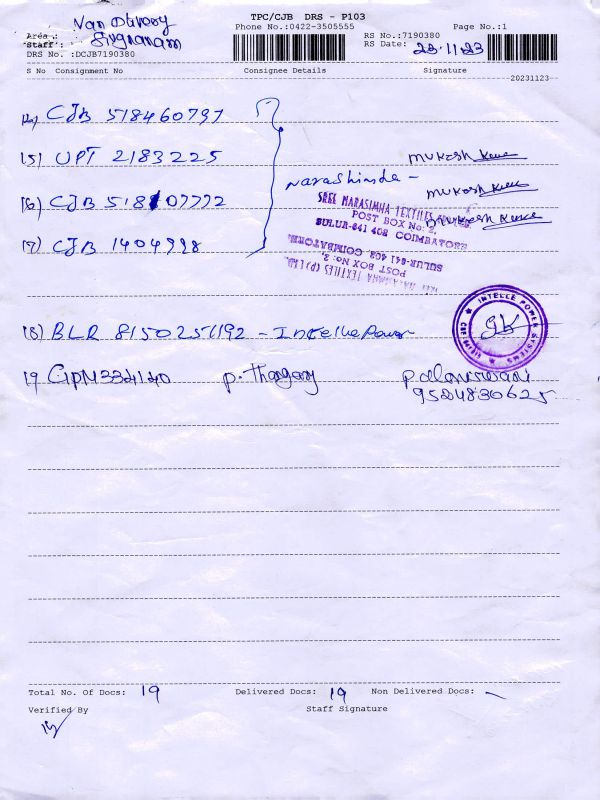 TPC/CJB DRS - P103
Van Delivery
Phone No.:0422-3505555
Page No.:1
Area :
RS No.:7190380
Staff:
RS Date: 23.11.23
DRS No. :DCJB7190380
S No Consignment No Consignee Details Signature
20231123
14) CJB 518460797
15) UPT 2183225 Mukesh
16) CJB 518107772 Narashimha - Mukesh
SREE NARASIMHA TEXTILES
POST BOX No: 2,
SULUR-641 402 COIMBATORE
Mukesh
17) CJB 1404998
SULUR-641 402, COIMBATORE.
POST BOX No: 2,
SREE NARASIMHA TEXTILES (P) LTD.
18) BLR 8150251192 - Intelle Power
INTELLE POWER SYSTEMS
19 GPM334140 P. Thangaraj
9524830625
Total No. Of Docs: 19 Delivered Docs: 19 Non Delivered Docs: -
Verified By Staff Signature